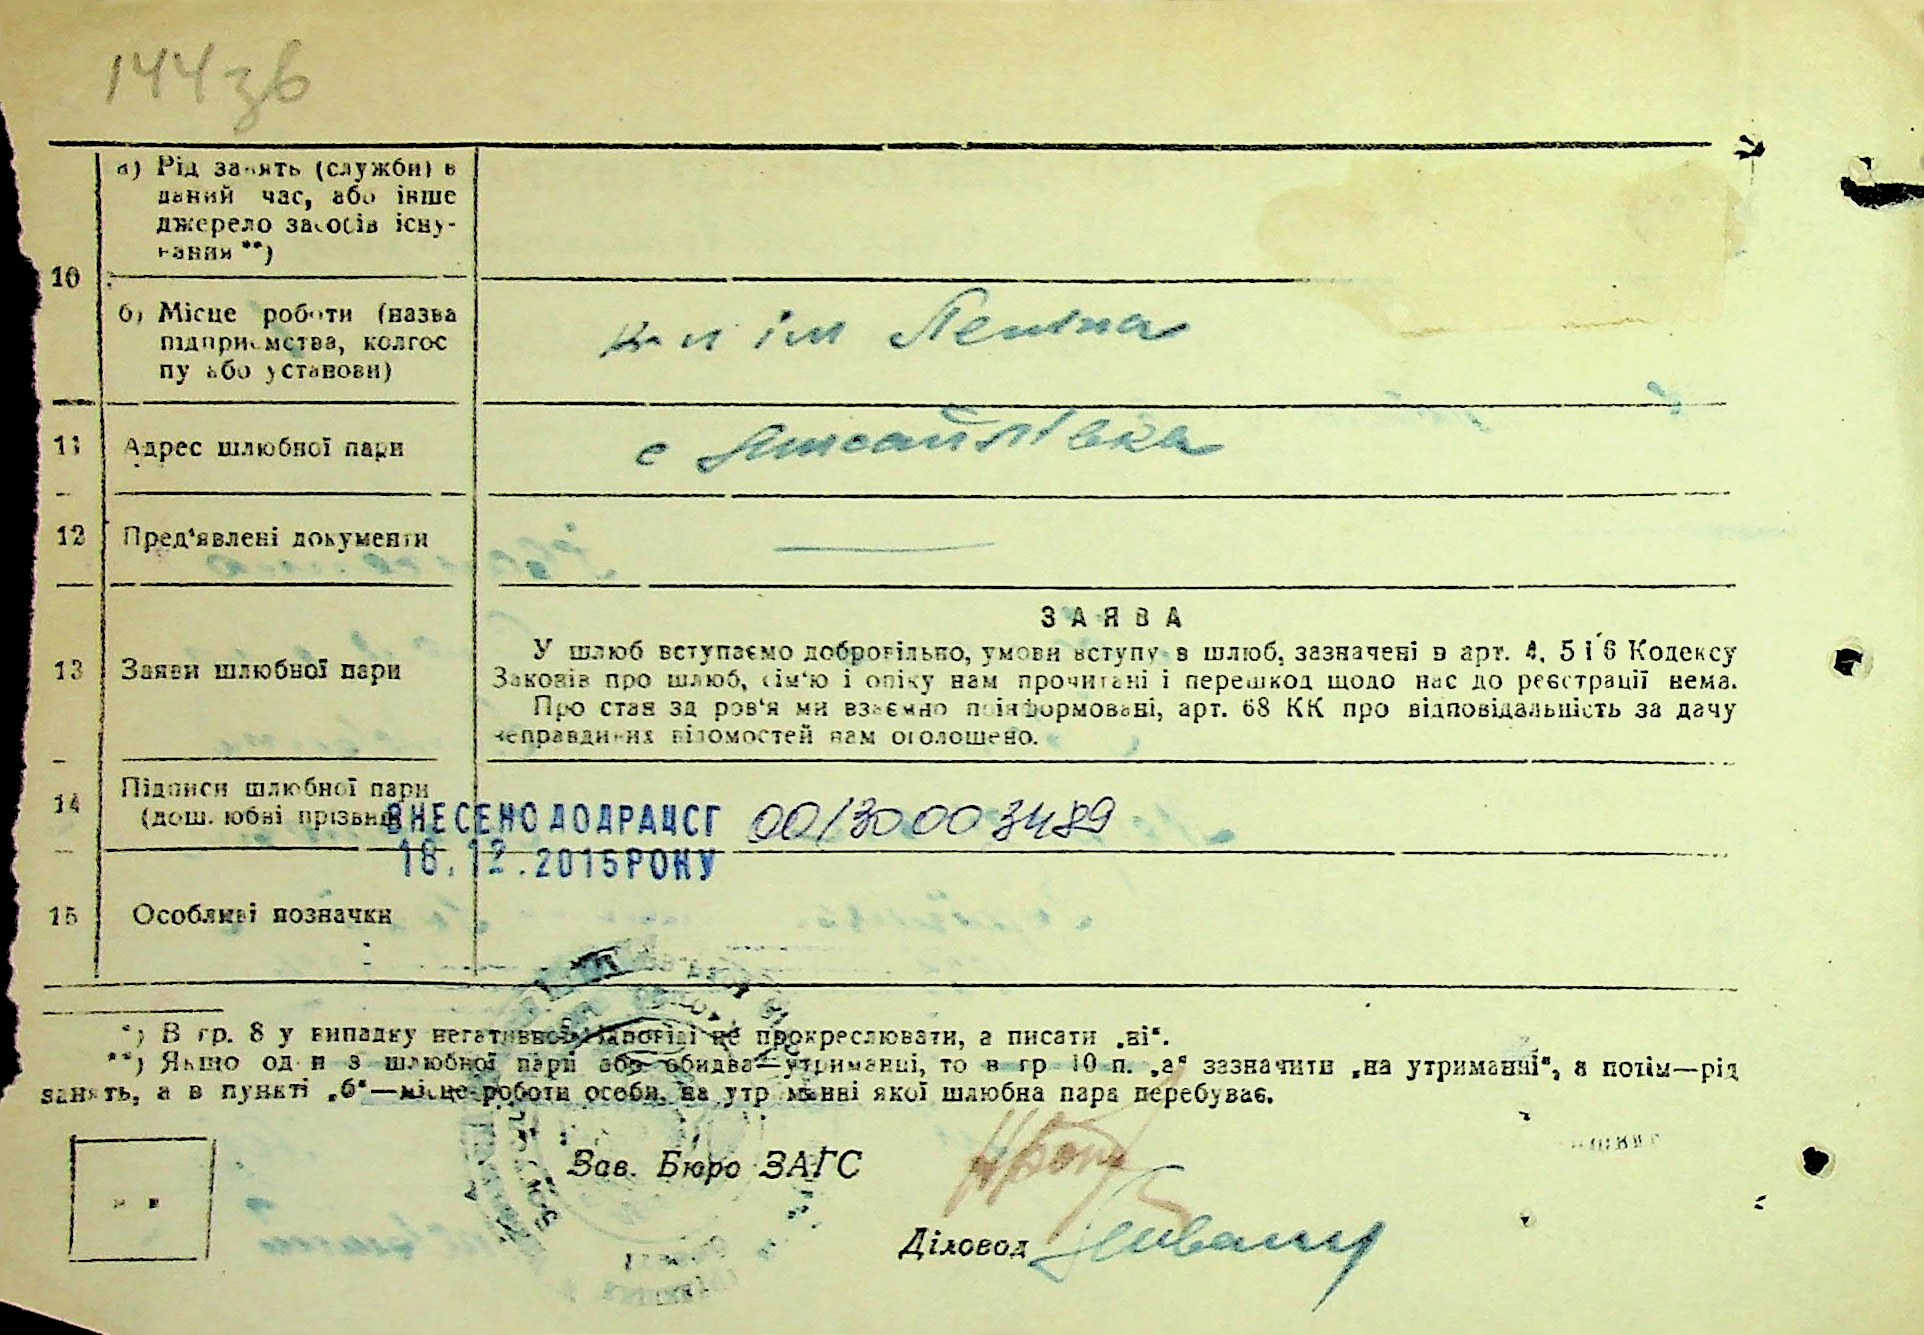 144зв
10
а) Рід занять (служби) в
даний час, або інше
джерело засобів існу-
вання **)
б) Місце роботи (назва
підприємства, колгос
пу або установи)
к-п ім Леніна
11
Адрес шлюбної пари
с
12
Пред'явлені документи
13
Заяви шлюбної пари
ЗАЯВА
У шлюб вступаємо добровільно, умови вступу в шлюб, зазначені в арт. 4, 5 і 6 Кодексу
Законів про шлюб, сім'ю і опіку нам прочитані і перешкод щодо нас до реєстрації нема.
Про стан здоров'я ми взаємно поінформовані, арт. 68 КК про відповідальність за дачу
неправдивих відомостей нам оголошено.
14
Підписи шлюбної пари
(дошлюбні прізвища)
ВНЕСЕНО ДО ДРАЦСГ 00130003489
18.12.2015 РОКУ
15
Особливі позначки
*) В гр. 8 у випадку негативної відповіді не прокреслювати, а писати „ні“.
**) Якщо один з шлюбної пари або обидва—утриманці, то в гр 10 п. „а“ зазначити „на утриманні“, а потім—рід
занять, а в пункті „б“—місце роботи особи, на утриманні якої шлюбна пара перебуває.
Зав. Бюро ЗАГС
Діловод